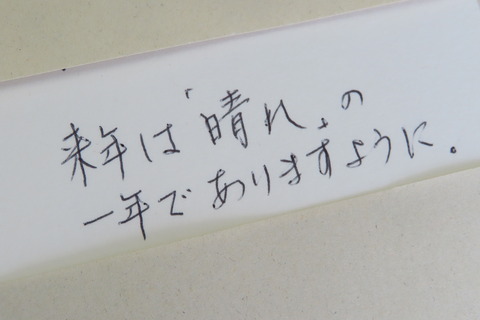 来年は「晴れ」の
一年でありますように.